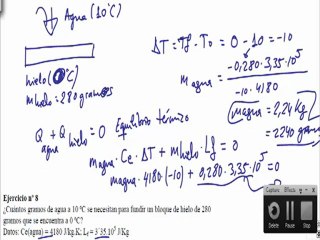 Agua (10°C)
hielo (0°C)
m hielo = 280 gramos
ΔT = Tf - To = 0 - 10 = -10
m agua = -0,280 · 3,35·10⁵ / -10 · 4180
m agua = 2,24 kg = 2240 gramos
Q agua + Q hielo = 0 Equilibrio térmico
m agua · Ce · ΔT + m hielo · Lf = 0
m agua · 4180 (-10) + 0,280 · 3,35·10⁵ = 0
Ejercicio nº 8
¿Cuántos gramos de agua a 10 ºC se necesitan para fundir un bloque de hielo de 280
gramos que se encuentra a 0 ºC?
Datos: Ce(agua) = 4180 J/kg.K; Lf = 3'35.10⁵ J/Kg
Capture
Effects
Delete
Pause
Stop